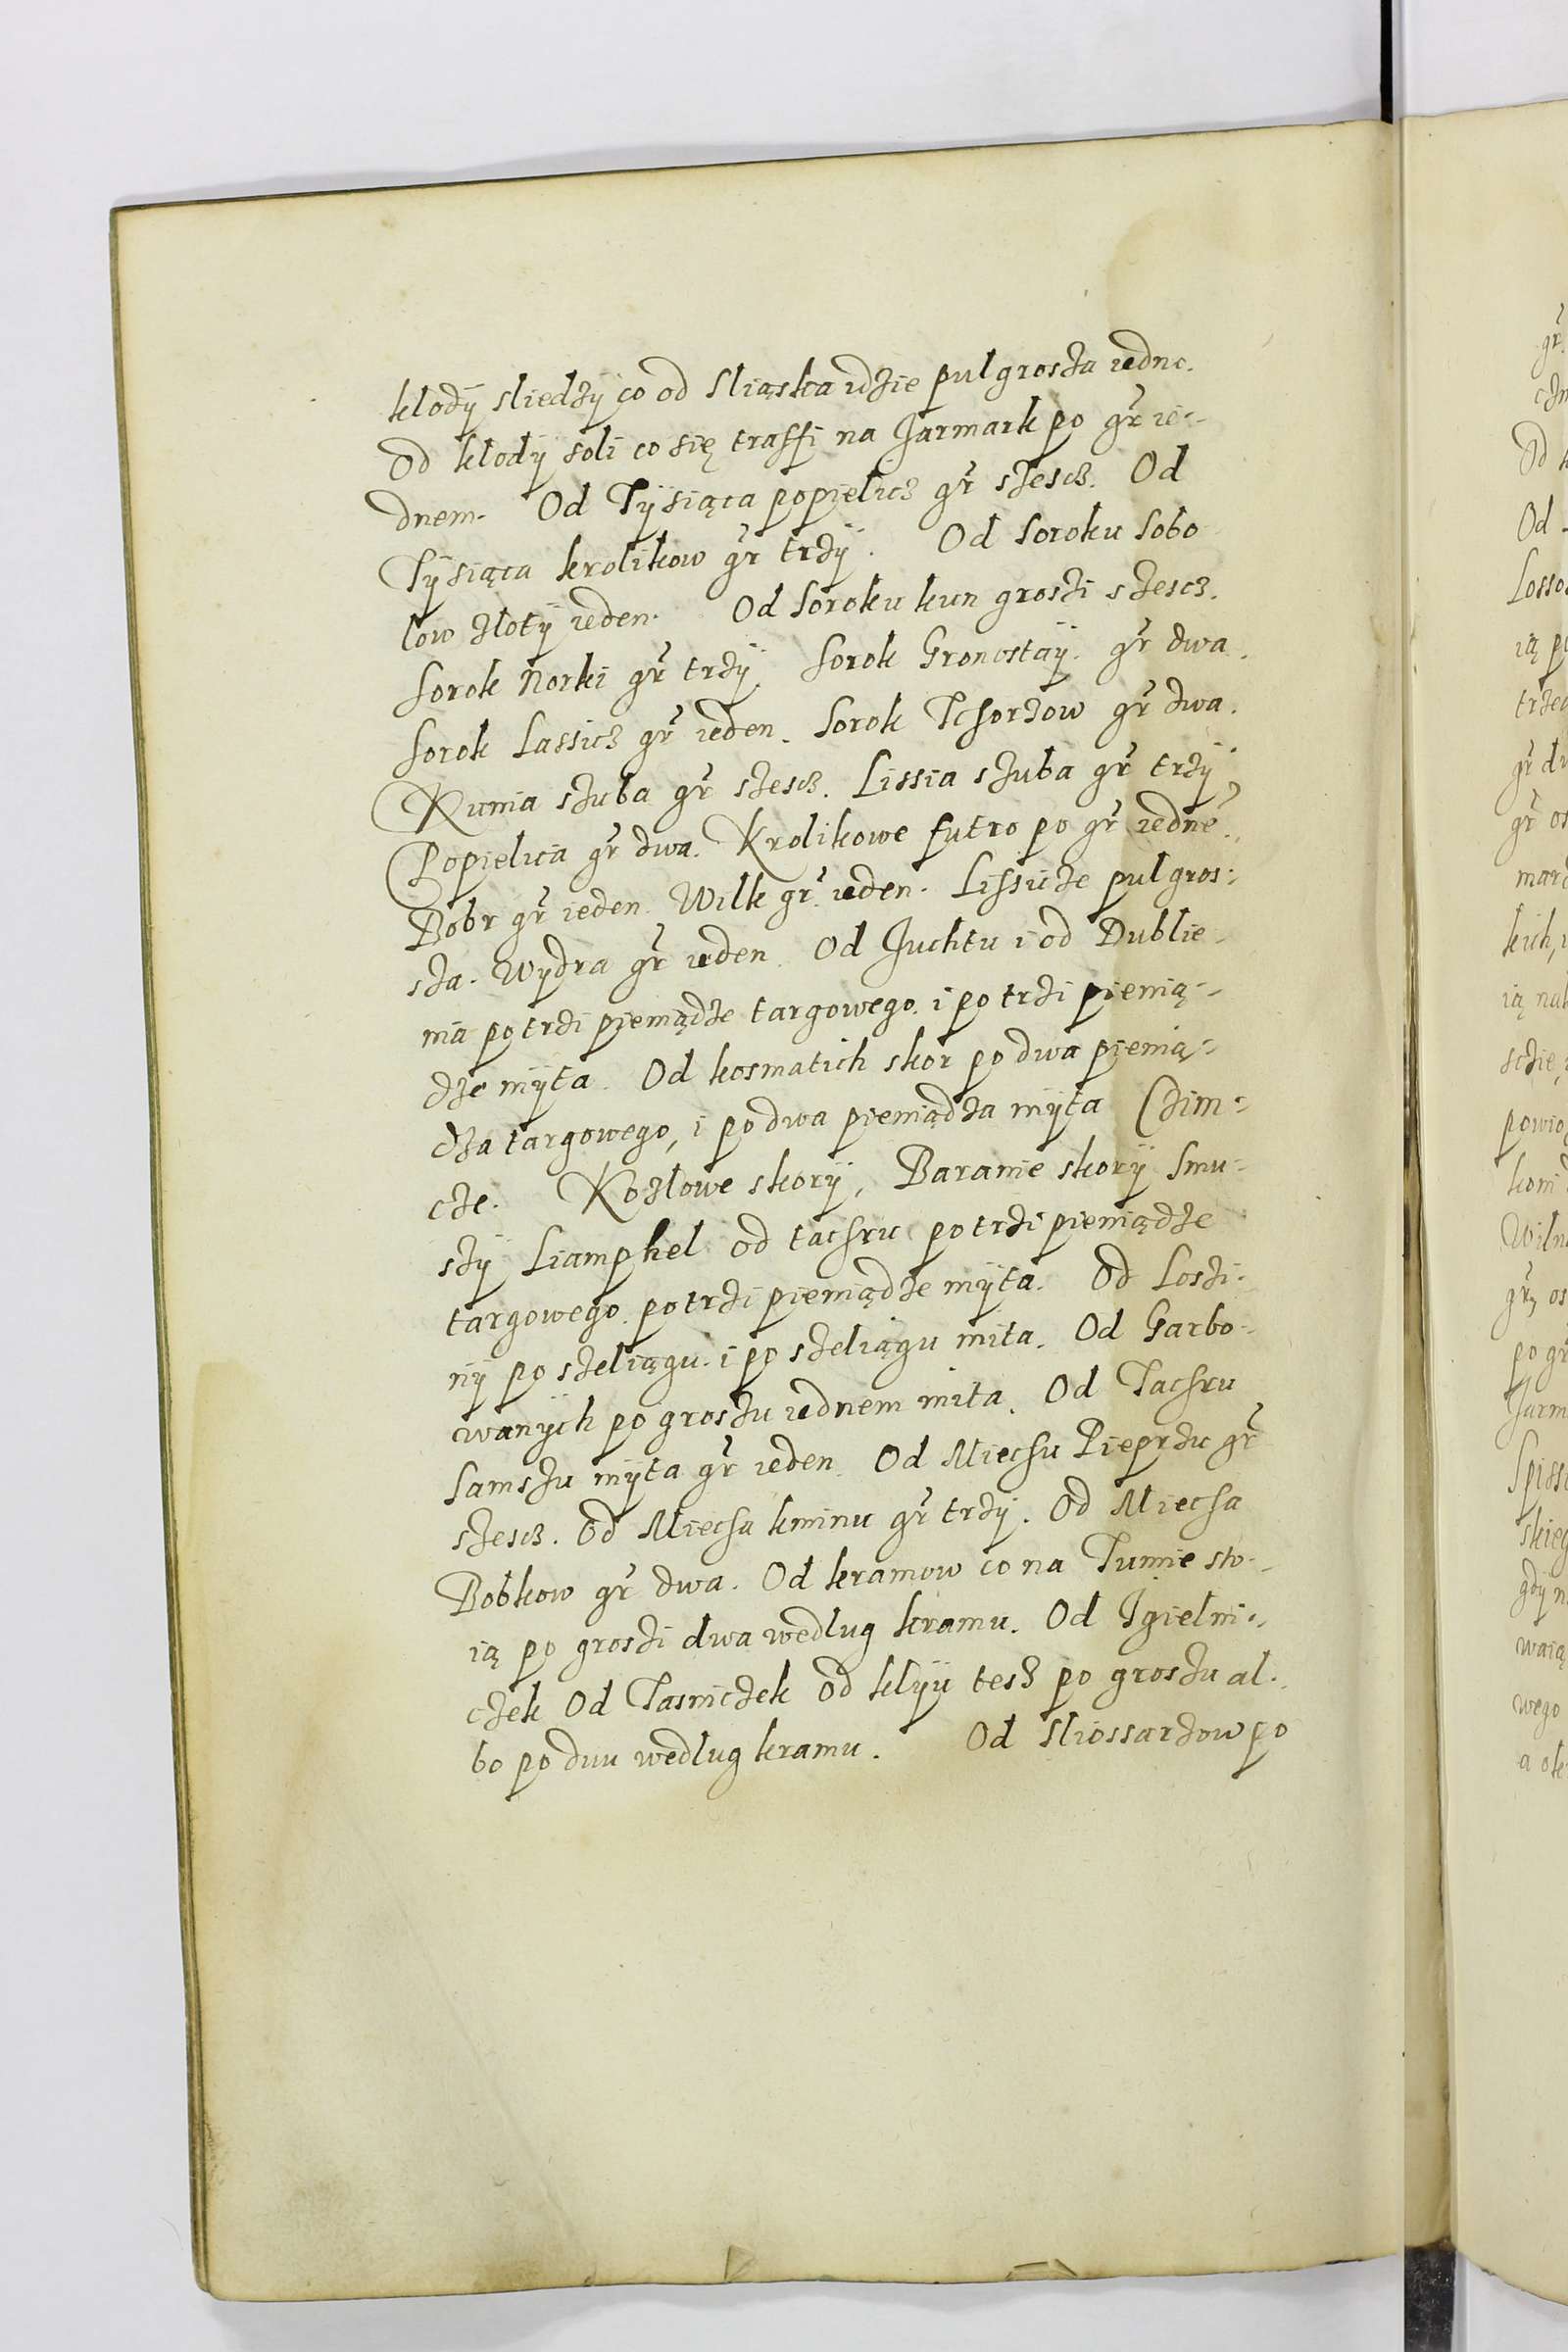 klodÿ sliedzÿ co od Sliąska idzie pul grosza iedne.
Od klodÿ soli co się traffi na Jarmark po gr̃ ie-
dnem. Od Tÿsiąca popielicz gr̃ szescz. Od
Tÿsiąca krolikow gr̃ trzÿ. Od Soroku Sobo
low zlotÿ ieden. Od Soroku kun groszi szescz.
Sorok Norki gr̃ trzÿ. Sorok Gronostaÿ. gr̃ dwa.
Sorok Lassicz gr̃ ieden. Sorok Tchorzow gr̃ dwa.
Kunia szuba gr̃ szescz. Lissia szuba gr̃ trzÿ
Popielicia gr̃ dwa. Krolikowe futro po gr̃ iedne.
Bobr gr̃ ieden. Wilk gr̃ ieden. Lissicze pul gros:
sza. Wydra gr̃ ieden. Od Juchtu i od Dublie-
nia po trzi pieniądze targowego. i po trzi pienią-
dze mÿta. Od kosmatich skor po dwa pienią-
dza targowego, i po dwa pieniądza mÿta Czim-
cze. Kozlowe skorÿ, Baranie skorÿ Smu-
szÿ Liamphel od tachru po trzi pieniądze
targowego. po trzi pieniądze mÿta. Od Loszi-
nÿ po szeliągu. i po szeliągu mita. Od Garbo-
wanÿch po groszu iednem mita. Od Tachru
Samszu mÿta gr̃ ieden. Od Miechu Pieprzu gr̃
szescz. Od Miecha kminu gr̃ trzÿ. Od Miecha
Bobkow gr̃ dwa. Od kramow co na Tumie sto-
ią po groszi dwa wedlug kramu. Od Igielni-
czek Od Tasniczek od klÿu tesz po groszu al-
bo po duu wedlug kramu. Od Sliossarzow po